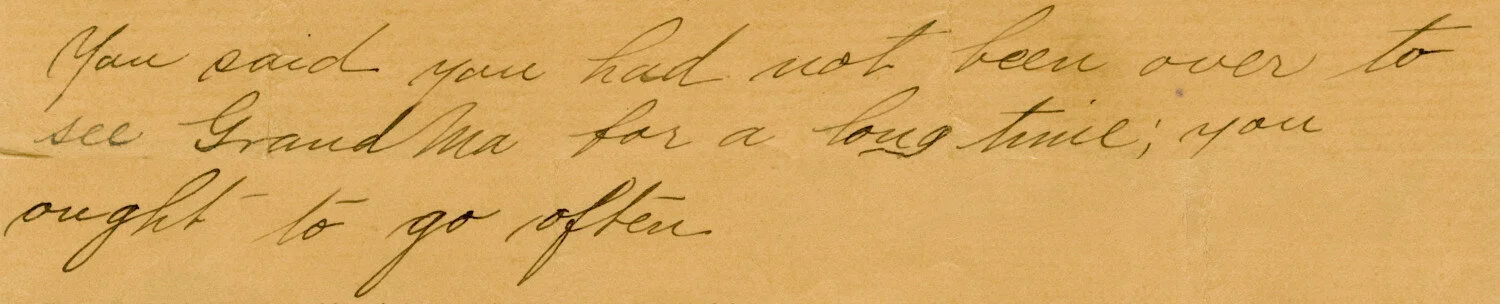 You said you had not been over to
see Grand Ma for a long time; you
ought to go often